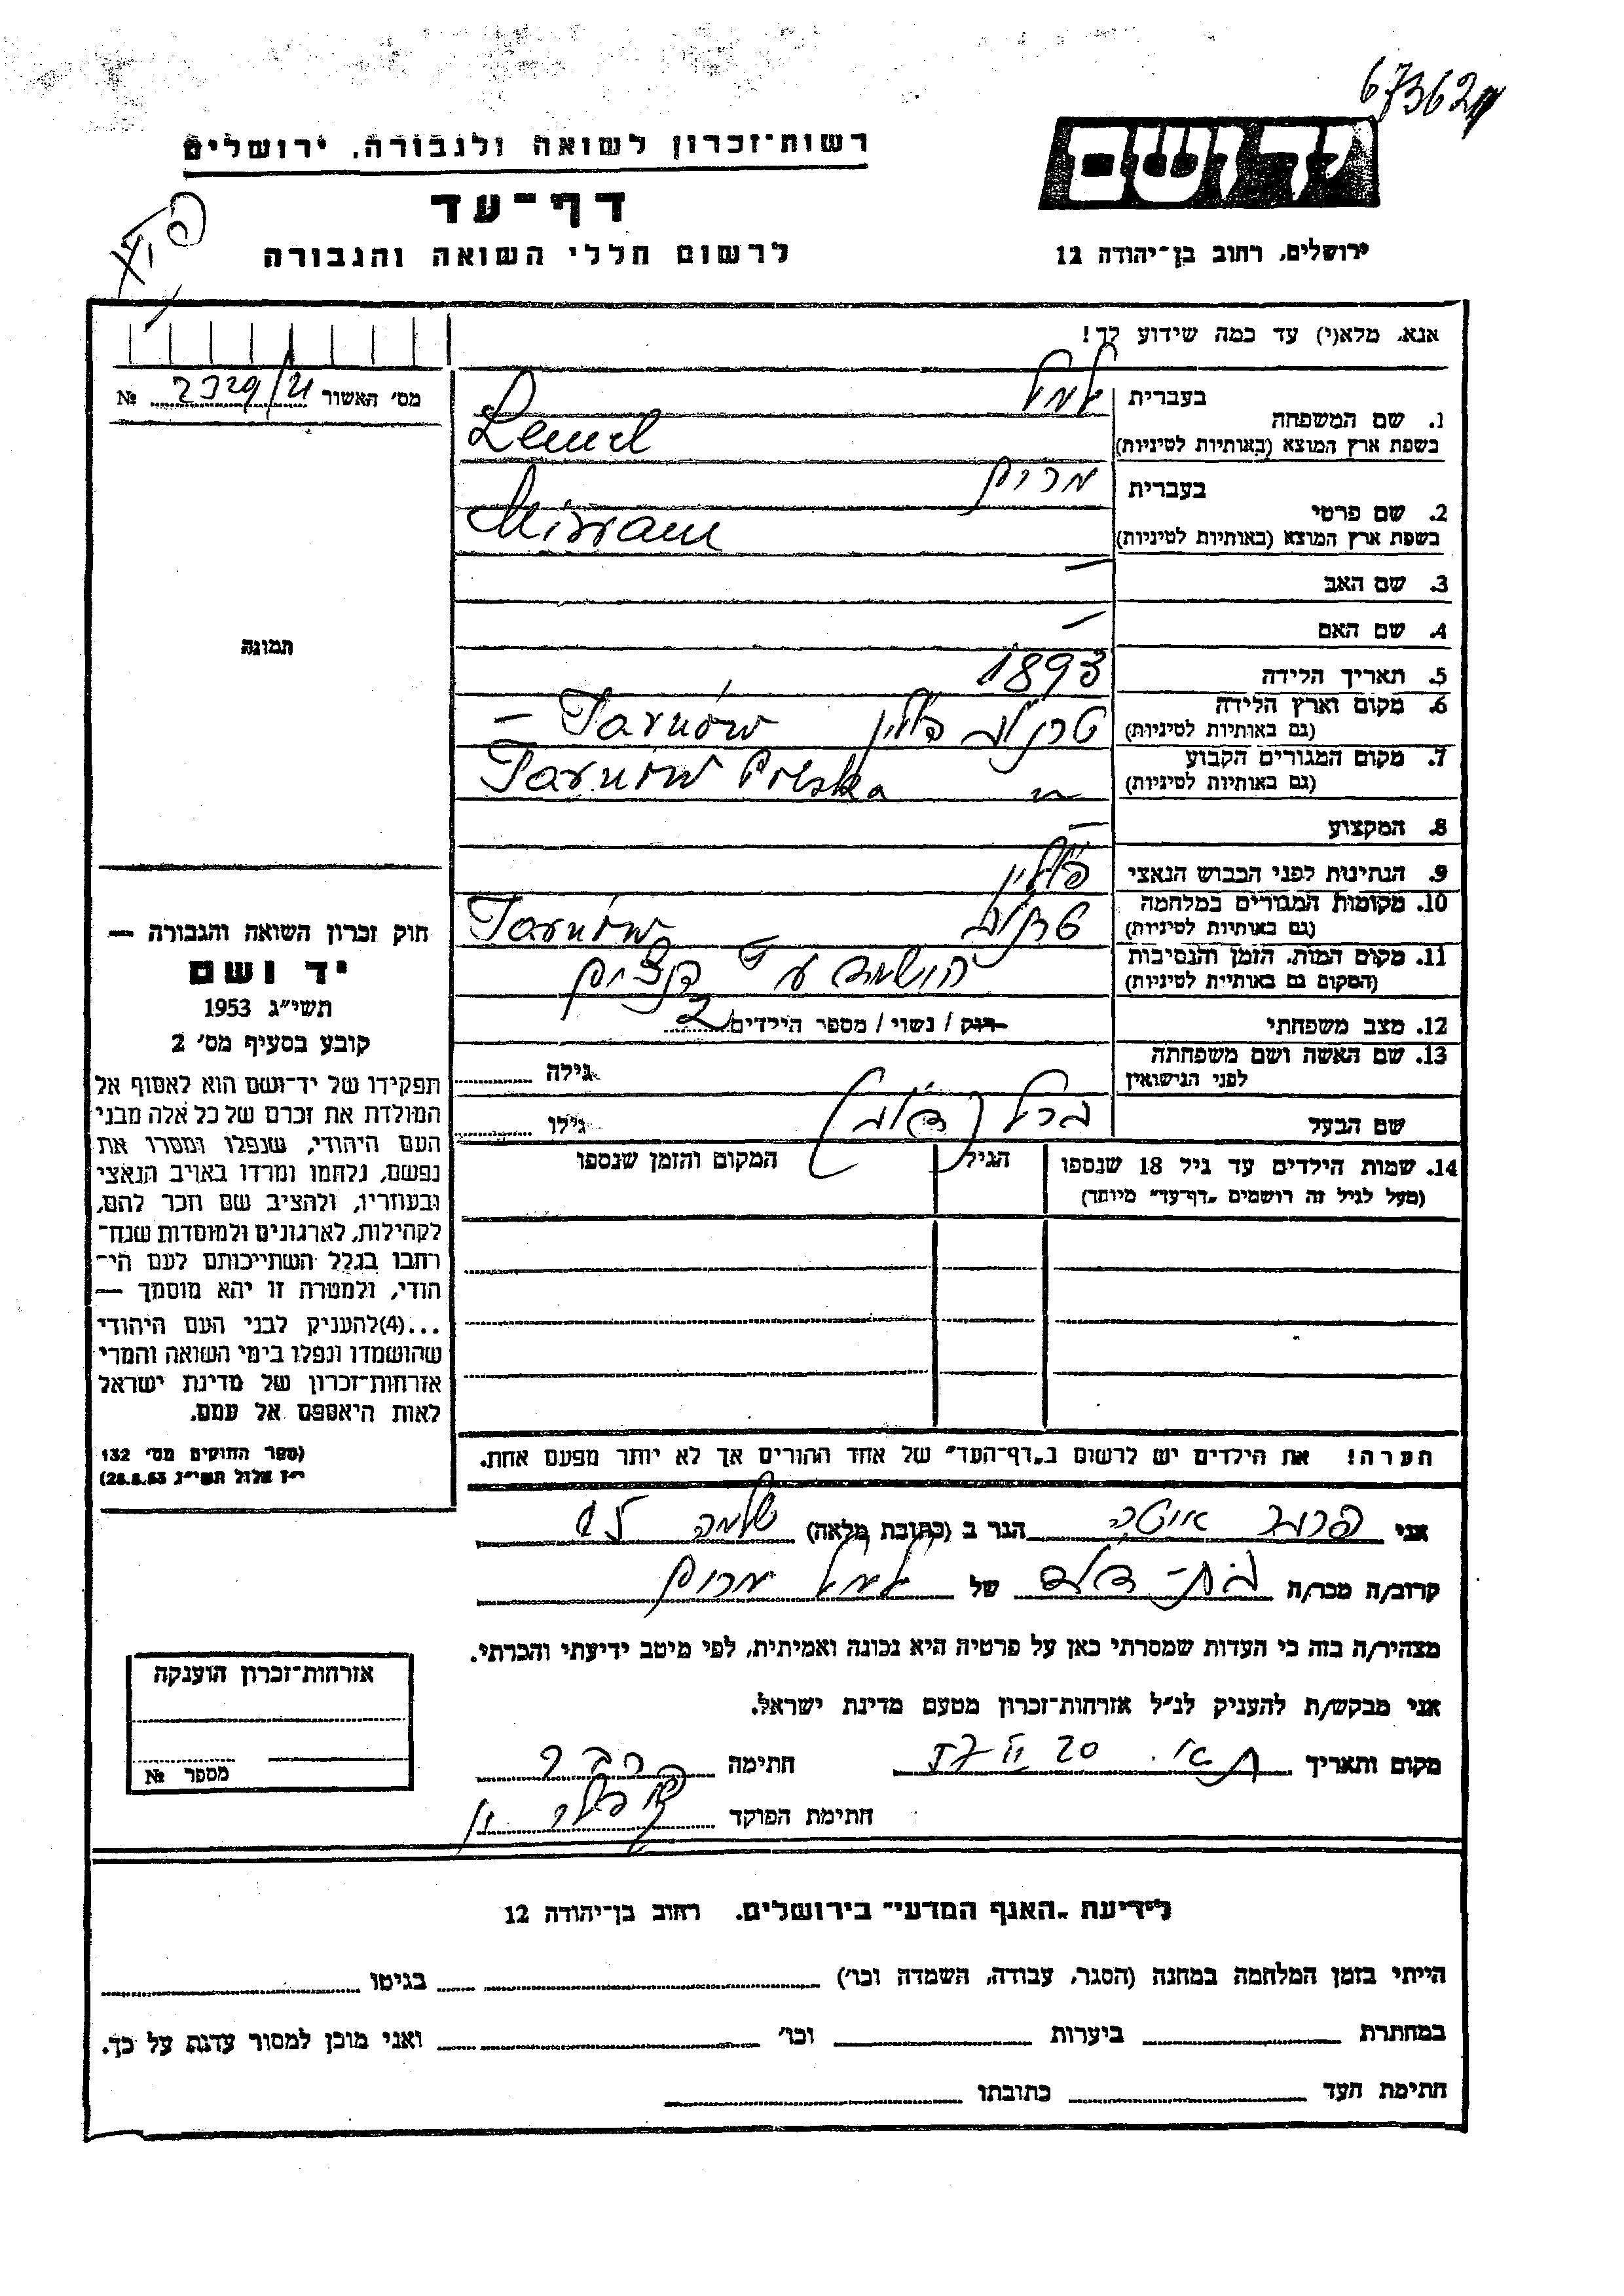 67362
יד ושם
רשות־זכרון לשואה ולגבורה. ירושלים
דף־עד
לרשום חללי השואה והגבורה
ירושלים, רחוב בן־יהודה 12
אנא, מלא(י) עד כמה שידוע לך!
מס׳ האשור 2329/21 №
תמונה
בעברית למל
1. שם המשפחה
בשפת ארץ המוצא (באותיות לטיניות) Lemel
בעברית מרים
2. שם פרטי
בשפת ארץ המוצא (באותיות לטיניות) Miriam
3. שם האב —
4. שם האם —
5. תאריך הלידה 1893
6. מקום וארץ הלידה
(גם באותיות לטיניות) טרנוב פולין Tarnów —
7. מקום המגורים הקבוע
(גם באותיות לטיניות) Tarnów Polska
8. המקצוע —
9. הנתינות לפני הכבוש הנאצי פולין
10. מקומות המגורים במלחמה
(גם באותיות לטיניות) טרנוב Tarnów
11. מקום המות, הזמן והנסיבות
(המקום גם באותיית לטיניות) הושמדה ע״י הנצים
12. מצב משפחתי רוק / נשוי / מספר הילדים 2
13. שם האשה ושם משפחתה
לפני הנישואין גילה
שם הבעל גילו
14. שמות הילדים עד גיל 18 שנספו הגיל המקום והזמן שנספו
(מעל לגיל זה רושמים „דף־עד״ מיוחד)
הערה! את הילדים יש לרשום ב„דף־העד״ של אחד ההורים אך לא יותר מפעם אחת.
חוק זכרון השואה והגבורה —
יד ושם
תשי״ג 1953
קובע בסעיף מס׳ 2
תפקידו של יד־ושם הוא לאסוף אל
המולדת את זכרם של כל אלה מבני
העם היהודי, שנפלו ומסרו את
נפשם, נלחמו ומרדו באויב הנאצי
ובעוזריו, ולהציב שם וזכר להם,
לקהילות, לארגונים ולמוסדות שנח־
רחבו בגלל השתייכותם לעם הי־
הודי, ולמטרה זו יהא מוסמך —
...(4)להעניק לבני העם היהודי
שהושמדו ונפלו בימי השואה והמרי
אזרחות־זכרון של מדינת ישראל
לאות היאספם אל עמם.
(ספר החוקים מס׳ 132
י״ז אלול תשי״ג 28.8.53)
אני הגר ב (כתובת מלאה) שלמה
קרוב/ה מכר/ה בת־דוד של למל מרים
מצהיר/ה בזה כי העדות שמסרתי כאן על פרטיה היא נכונה ואמיתית, לפי מיטב ידיעתי והכרתי.
אני מבקש/ת להעניק לנ״ל אזרחות־זכרון מטעם מדינת ישראל.
מקום ותאריך ת״א. 20 חתימה
חתימת הפוקד
אזרחות־זכרון הוענקה
מספר №
לידיעת „האגף המדעי״ בירושלים. רחוב בן־יהודה 12
הייתי בזמן המלחמה במחנה (הסגר, עבודה, השמדה וכו׳) בגיטו
במחתרת ביערות וכו׳ ואני מוכן למסור עדות על כך.
חתימת העד כתובתו